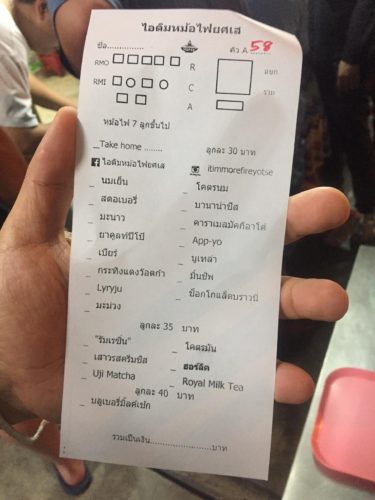 ไอติมหม้อไฟยศเส
ชื่อ............... คิว A 58
RMO R แยก
RMI C ราด
A
หม้อไฟ 7 ลูกขึ้นไป
__Take home ........ ลูกละ 30 บาท
ไอติมหม้อไฟยศเส itimmorefireyotse
_ นมเย็น _ โคตรนม
_ สตอเบอรี่ _ บานาน่าชีส
_ มะนาว _ คาราเมลมัคคิอาโต้
_ ยาคูลท์ปีโป้ _ App-yo
_ เบียร์ _ บูเหล้า
_ กระทิงแดงว้อดก้า _ มิ้นชีพ
_ Lyryju _ ช็อกโกแล็คบราวนี่
_ มะม่วง
ลูกละ 35 บาท
_ "รัมเรซิ่น" _ โคตรมัน
_ เสาวรสครีมชีส _ ฮอร์ลิค
_ Uji Matcha _ Royal Milk Tea
ลูกละ 40 บาท
_ บลูเบอรี่มิ้ลค์เช้ก
รวมเป็นเงิน......................บาท